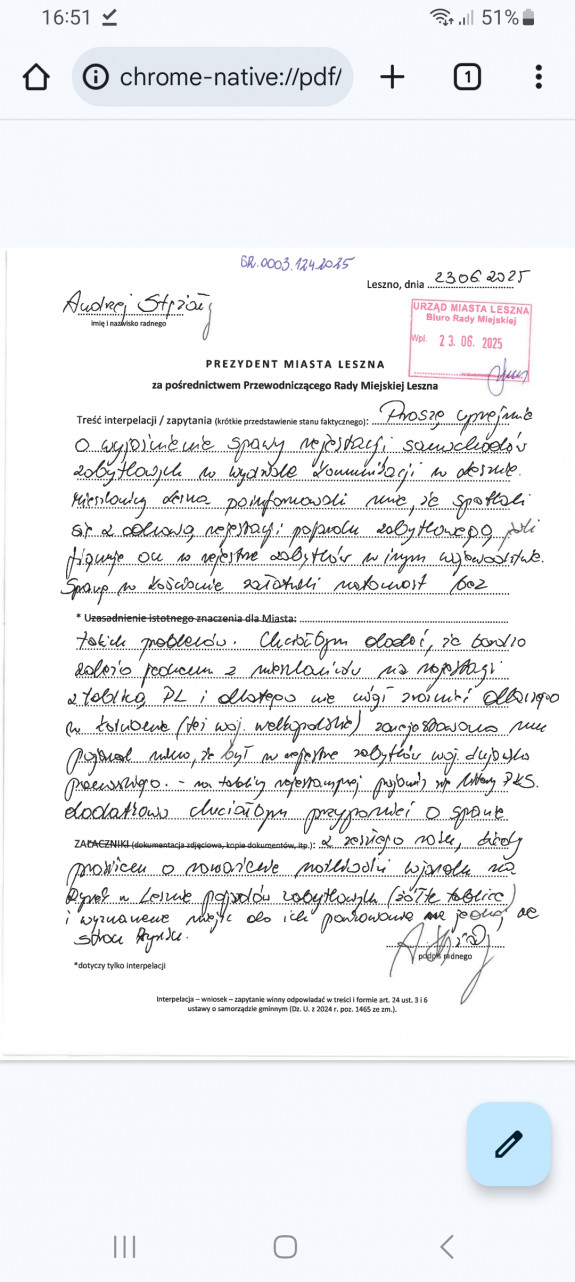 16:51
51%
chrome-native://pdf/
1
BR.0003.124.2025
Leszno, dnia 23 06. 2025
Andrzej
imię i nazwisko radnego
URZĄD MIASTA LESZNA
Biuro Rady Miejskiej
Wpł. 23. 06. 2025
PREZYDENT MIASTA LESZNA
za pośrednictwem Przewodniczącego Rady Miejskiej Leszna
Treść interpelacji / zapytania (krótkie przedstawienie stanu faktycznego): Proszę uprzejmie
o wyjaśnienie sprawy rejestracji samochodów
zabytkowych w wydziale komunikacji w Lesznie.
Mieszkańcy Leszna poinformowali mnie, że spotkali
się z odmową rejestracji pojazdu zabytkowego, jeśli
figuruje on w rejestrze zabytków w innym województwie.
Sprawę w Kościanie załatwili natomiast bez
* Uzasadnienie istotnego znaczenia dla Miasta:
takich problemów. Chciałbym dodać, że bardzo
zależo jednemu z mieszkańców na rejestracji
z tablicą PL i dlatego nie mógł zrozumieć dlaczego
w (też woj. wielkopolskie) zarejestrowano mu
pojazd mimo, że był w rejestrze zabytków woj.
- na tablicy rejestracyjnej pojawiły się litery PKS.
dodatkowo chciałbym przypomnieć o sprawie
ZAŁĄCZNIKI (dokumentacja zdjęciowa, kopie dokumentów, itp.): z zeszłego roku, kiedy
prosiłem o rozważenie możliwości wjazdu na
Rynek w Lesznie pojazdów zabytkowych (żółte tablice)
i wyznaczenie miejsc do ich parkowania na jednej ze
stron Rynku.
podpis radnego
*dotyczy tylko interpelacji
Interpelacja – wniosek – zapytanie winny odpowiadać w treści i formie art. 24 ust. 3 i 6
ustawy o samorządzie gminnym (Dz. U. z 2024 r. poz. 1465 ze zm.).